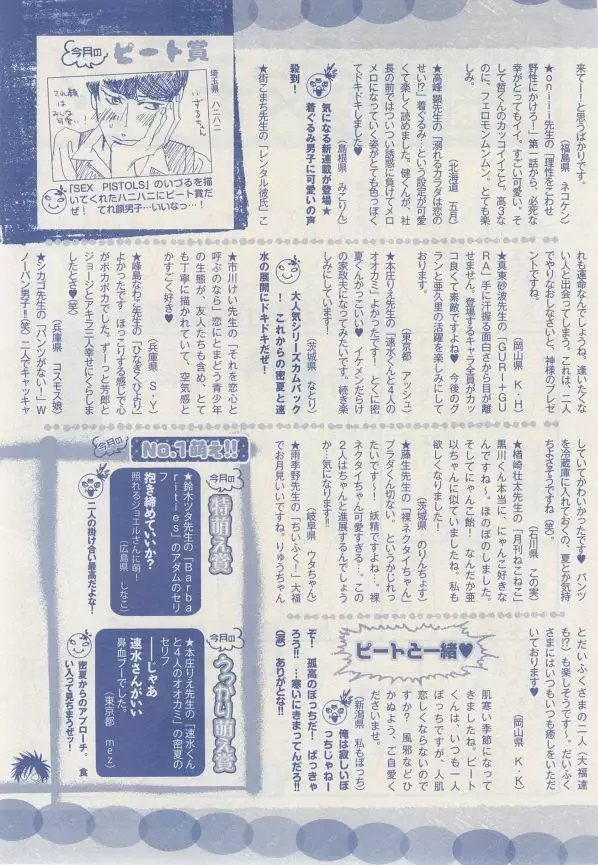 今月の
ピート賞
埼玉県 ハニハニ
いづるちゃん
てれ顔
は
みんな
可愛い!
「SEX PISTOLS」のいづるを描
いてくれたハニハニにピート賞だ
ぜ! てれ顔男子…いいなっ!
来てーーと思うばかりです。
(福島県 ネコケン)
★oniii先生の「理性をこわせ
野性にかけろ!」第一話から、必死な
幸がとってもイイ。すごい可愛い。そ
して哲くんのカッコイイこと。高3な
のに、フェロモンムンムン。とても楽
しみ。
(北海道 五月)
★高峰 顕先生の「溺れるカラダは恋の
せい!?」着ぐるみ…という設定が可愛
くて楽しく読めました。健くんが、社
長の前ではついつい誘惑に負けてメロ
メロになっていく姿がとても色っぽく
てドキドキしました♥
(島根県 みとりん)
気になる新連載が登場★
着ぐるみ男子に可愛いの声
殺到!
★街こまち先生の「レンタル彼氏」こ
れも運命なんでしょうね、逢いたくな
い人と出会ってしまう。これは、二人
でやりなおしなさいと、神様のプレゼ
ントですね。
(岡山県 K・H)
★真東砂波先生の「GURI+GU
RA」手に汗握る面白さから目が離
せません。登場するキャラ全員がカッ
コ良くて素敵ですよね♥ 今後のグ
ランと亜久里の活躍を楽しみにして
おります。
(東京都 アッシュ)
★本庄りえ先生の「速水くんと4人の
オオカミ」よかったです! とくに密
夏くんかっこいい♥ イケメンだらけ
の家秋夫になってみたいです。続き楽
しみにしています!
(茨城県 なとり)
大人気シリーズカムバック
! これからの密夏と速
水の展開にドキドキだぜ!
★市川けい先生の「それを恋心と
呼ぶのなら」恋にとまどう青少年
の生態が、友人たちも含め、とて
も丁寧に描かれていて、空気感と
かすごく好き♥
(兵庫県 S・Y)
★峰島なわこ先生の「ひなぎくびより」
よかったです♡ ほっこりする感じで心
がポカポカでした。ずーっと芳郎と
ジョージとアキラ三人幸せにくらしま
したとさ♥(笑)
(兵庫県 コスモス娘)
★シカゴ先生の「パンツがない!」W
ノーパン男子!!(笑) 二人でキャッキャ
していてかわいかったです♥ パンツ
を冷蔵庫に入れておくの、夏とか気持
ちよさそうですね(笑)。
(石川県 この実)
★楢崎壮太先生の「月刊ねこねこ」
黒川くん本当に、にゃんこ好きな
んですね〜。ほのぼのしました。
そしてにゃんこ飴! なんだか亜
以ちゃんに似ていましたね。私も
欲しくなりました!
(茨城県 のりんちょす)
★藤生先生の「裸ネクタイちゃん」
ブラダくん切ない。というかじれっ
たいですー! 妖精ですよね…。裸
ネクタイちゃん可愛すぎる…。この
2人はちゃんと進展するんでしょう
か…気になります!!
(岐阜県 ウタちゃん)
★雨季野先生の「ちいふく!」大福
でお月見いいですね。りゅうちゃん
とだいふくさまの二人(大福達
も!?)も楽しそうです〜。だいふく
さまにはいつもいつも癒しをいただ
いております♥
(岡山県 K・K)
ピートと一緒♥
肌寒い季節になって
きましたね。ピート
くんは、いつも一人
ぼっちですが、人肌
恋しくならないので
すか? 風邪などひ
かぬよう、ご自愛く
ださいませ。
(新潟県 私もぼっち)
俺は寂しいぼ
っちじゃねー
ぞ! 孤高のぼっちだ! ばっきゃ
ろっ!! …寒いにきまってんだろ!!
(涙) ありがとな!!
今月の
No.1萌え!!
今月の
特萌え賞
★鈴木ツタ先生の「Barba
rities」のアダムのセリ
フ
抱き締めていいか?
照れるジョエルさんに萌!
(広島県 しなこ)
二人の掛け合い最高だよな!
今月の
うっかり萌え賞
★本庄りえ先生の「速水くん
と4人のオオカミ」の密夏の
セリフ
――じゃあ
速水さんがいい
鼻血ブーでした。
(東京都 mez)
密夏からのアプローチ。食
い入って見ちまうぜッ!